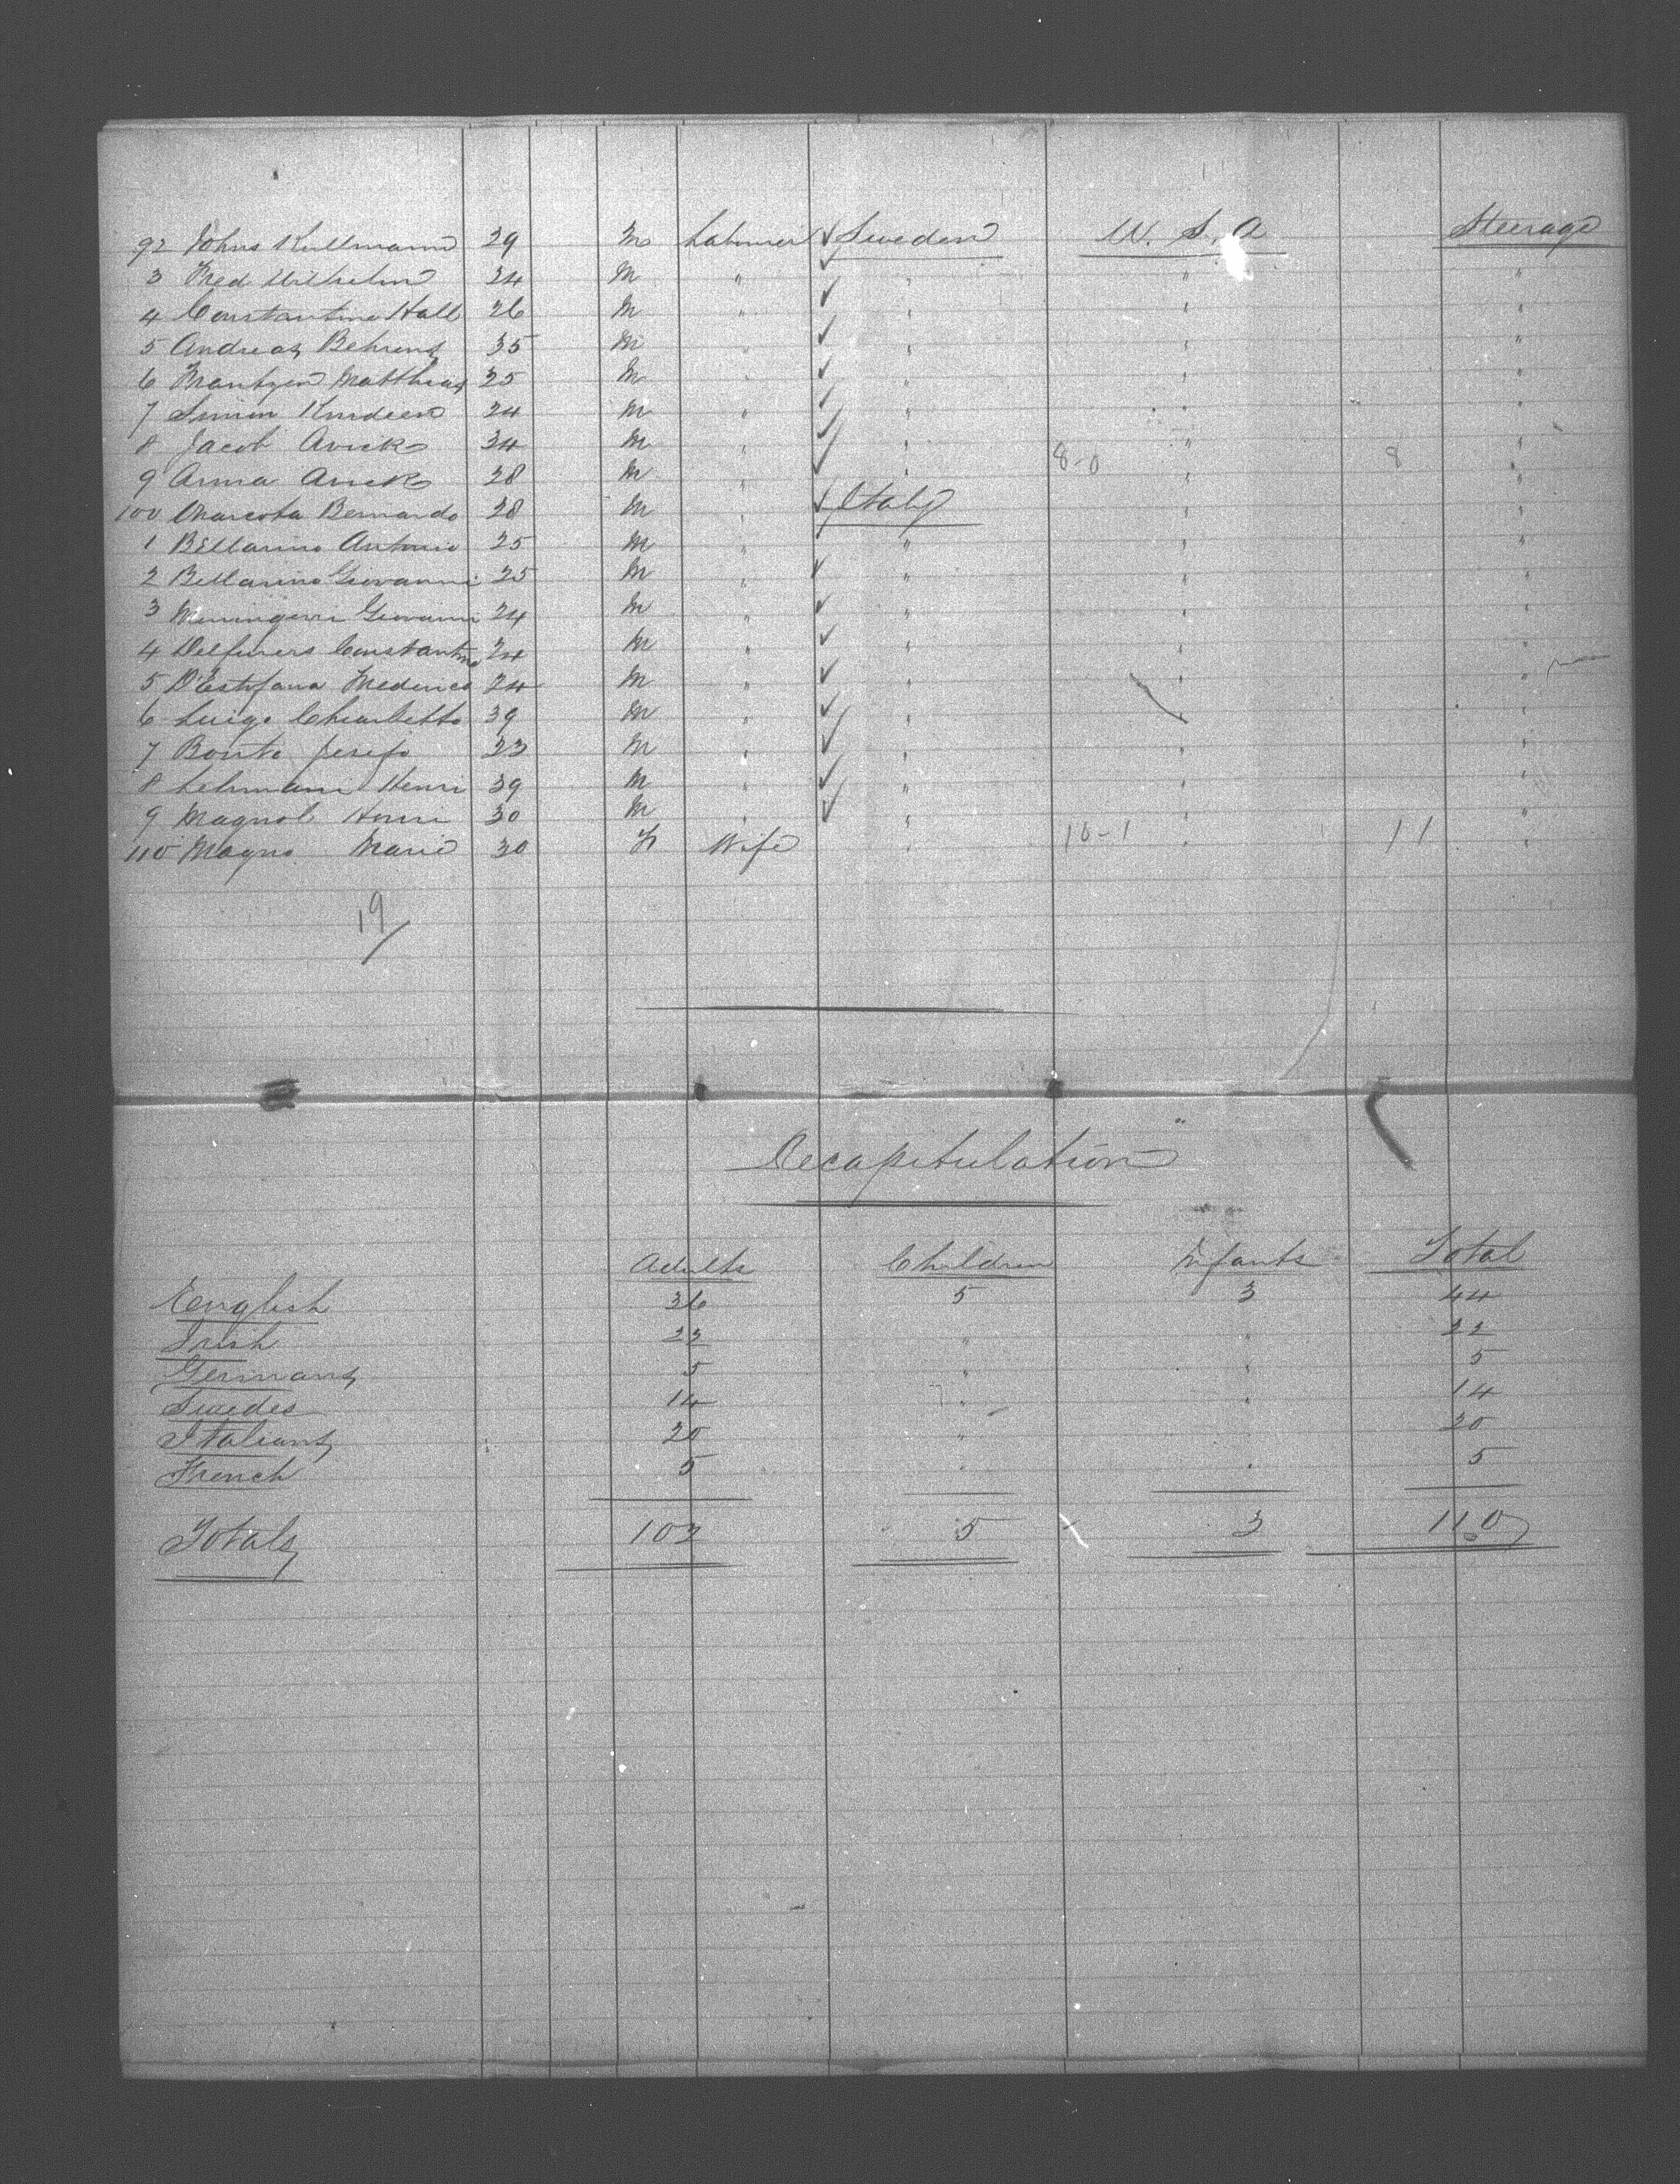 92 Johns Kullmann 29 M Labourer ✓ Sweden U. S. A Steerage
3 Fred Wilhelm 24 M " ✓ " " "
4 Constantine Hall 26 M " ✓ " " "
5 Andreas Behrens 35 M " ✓ " " "
6 Frantzen Matthias 25 M " ✓ " " "
7 Simon Knudsen 24 M " ✓ " " "
8 Jacob Avick 34 M " ✓ " "  "
9 Anna Avick 28 M " ✓ " 8-0 " 8 "
100 Bernardo 28 M " ✓ Italy " "
1 Bellarino Antonio 25 M " " " "
2 Bellarino Giovanni 25 M " ✓ " " "
3 Giovanni 24 M " ✓ " " "
4 Constantino 24 M " ✓ " " "
5 D'Estefana Frederico 24 M " ✓ " " "
6 Luigo 39 M " ✓ " " "
7 Bonto 23 M " ✓ " " "
8 Lehmann Henri 39 M " ✓ " " "
9 Magnol Henri 30 M " ✓ " " "
110 Magno Marie 30 F Wife " 10-1 " 11 "
19/
Recapitulation"
Adults Children Infants Total
English 36 5 3 44
Irish 22 " " 22
Germans 5 " " 5
Swedes 14 " " 14
Italians 20 " " 20
French 5 " " 5
Totals 102 5 3 110